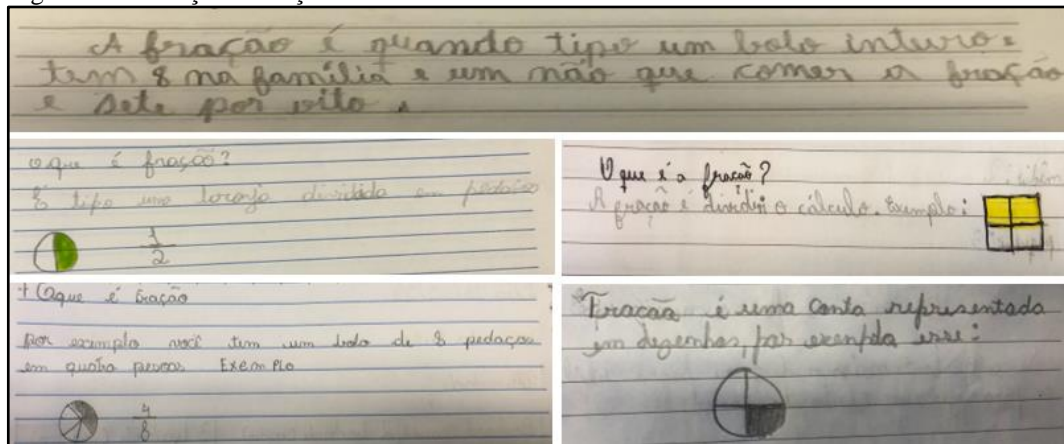 A fração é quando tipo um bolo inturo e
tem 8 na família e um não que comer a fração
e sete por oito.
o que é fração?
É tipo uma laranja dividida em pedaços
1
2
O que é a fração?
A fração é dividir o cálculo. Exemplo:
+ Oque é fração
por exemplo você tem um bolo de 8 pedaços
em quatro pessoas Exemplo
4
8
Fracãa é uma conta representada
em dezenhos, por exenplo esse: